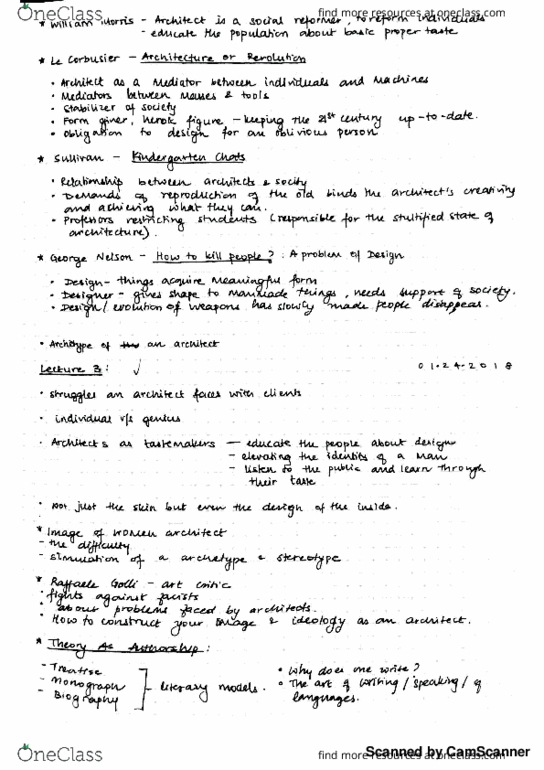 OneClass
find more resources at oneclass.com
* William Morris - Architect is a social reformer, to reform individuals
- educate the population about basic proper taste
* Le Corbusier - Architecture or Revolution
• Architect as a Mediator between individuals and Machines
• Mediators between Masses & tools
• Stabilizer of society
• Form giver, heroic figure - keeping the 21st century up-to-date.
• obligation to design for an oblivious person
* Sullivan - Kindergarten Chats
• Relationship between architects & socity
• Demands of reproduction of the old binds the architect's creativity
and achieving what they can.
• Professors restricting students (responsible for the stultified state of
architecture).
* George Nelson - How to kill people? : A problem of Design
• Design - things acquire meaningful form
• Designer - gives shape to manmade things, needs support of society.
• Design/evolution of weapons has slowly made people disappear.
• Archetype of an architect
Lecture 3: ✓
01.24.2018
• struggles an architect faces with clients
• individual v/s genius
• Architects as tastemakers — educate the people about design
- elevating the identity of a man
- listen to the public and learn through
their taste
• not just the skin but even the design of the inside.
* Image of women architect
- the difficulty
- simulation of a archetype & stereotype
* Raffaele - art critic
• fights against
• about problems faced by architects.
• How to construct your image & ideology as an architect.
* Theory As Authorship:
- Treatise
- Monograph
- Biography
literary models.
• Why does one write?
• The art of writing/speaking/of
languages.
OneClass
find more resources at oneclass.com
Scanned by CamScanner